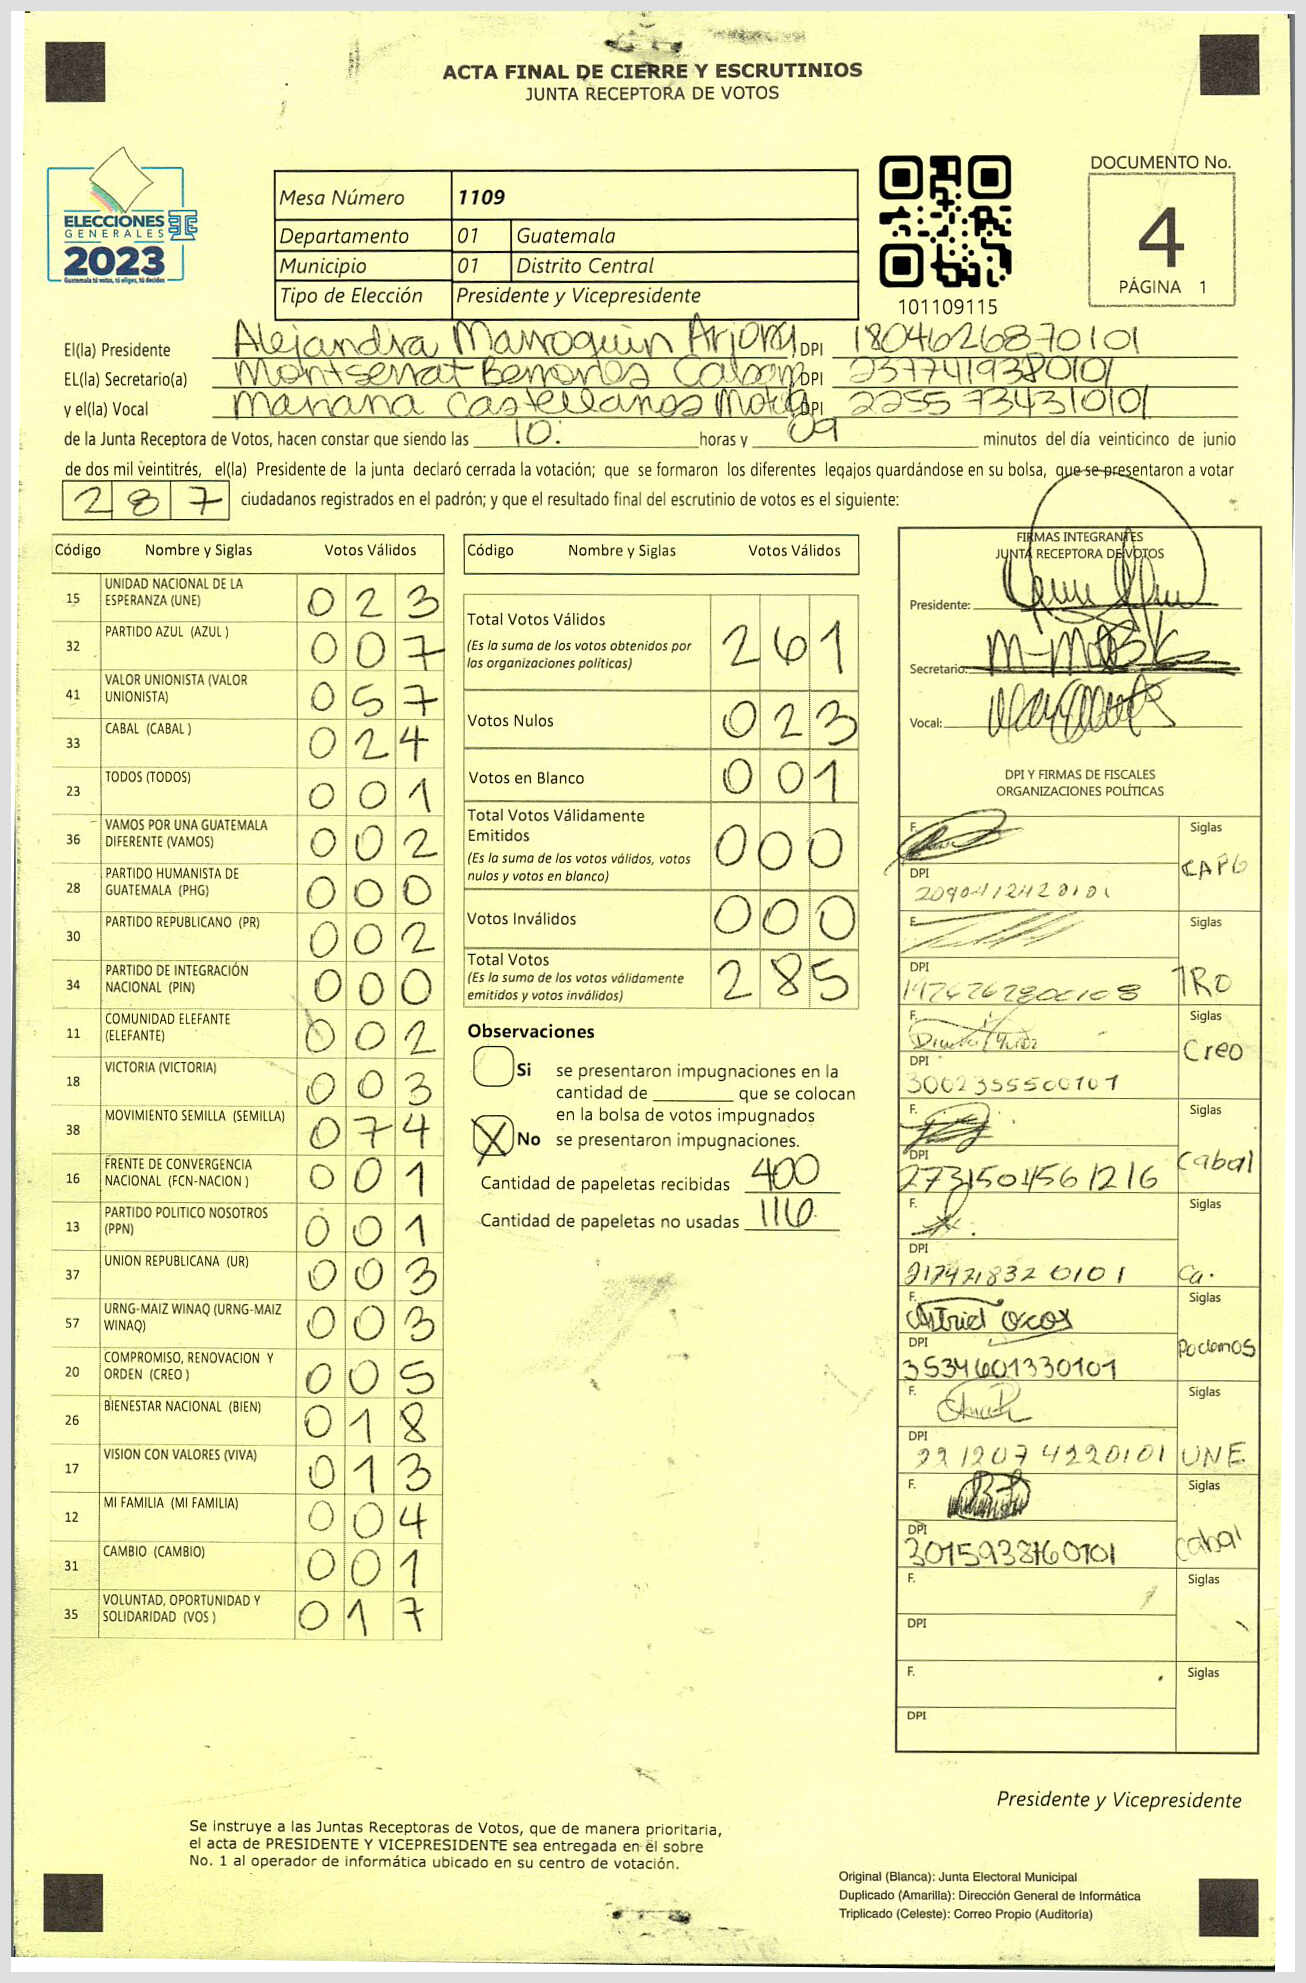 ACTA FINAL DE CIERRE Y ESCRUTINIOS
JUNTA RECEPTORA DE VOTOS
ELECCIONES
GENERALES
2023
Guatemala tú votas, tú eliges, tú decides
Mesa Número 1109
Departamento 01 Guatemala
Municipio 01 Distrito Central
Tipo de Elección Presidente y Vicepresidente
101109115
DOCUMENTO No.
4
PÁGINA 1
El(la) Presidente Alejandra Marroquin Arjona DPI 1804626870101
EL(la) Secretario(a) Montserrat DPI 2377419380101
y el(la) Vocal Mariana Castellanos Mota DPI 2255734310101
de la Junta Receptora de Votos, hacen constar que siendo las 10: horas y 09 minutos del día veinticinco de junio
de dos mil veintitrés, el(la) Presidente de la junta declaró cerrada la votación; que se formaron los diferentes legajos guardándose en su bolsa, que se presentaron a votar
287 ciudadanos registrados en el padrón; y que el resultado final del escrutinio de votos es el siguiente:
Código Nombre y Siglas Votos Válidos
15 UNIDAD NACIONAL DE LA ESPERANZA (UNE) 0 2 3
32 PARTIDO AZUL (AZUL ) 0 0 7
41 VALOR UNIONISTA (VALOR UNIONISTA) 0 5 7
33 CABAL (CABAL ) 0 2 4
23 TODOS (TODOS) 0 0 1
36 VAMOS POR UNA GUATEMALA DIFERENTE (VAMOS) 0 0 2
28 PARTIDO HUMANISTA DE GUATEMALA (PHG) 0 0 0
30 PARTIDO REPUBLICANO (PR) 0 0 2
34 PARTIDO DE INTEGRACIÓN NACIONAL (PIN) 0 0 0
11 COMUNIDAD ELEFANTE (ELEFANTE) 0 0 2
18 VICTORIA (VICTORIA) 0 0 3
38 MOVIMIENTO SEMILLA (SEMILLA) 0 7 4
16 FRENTE DE CONVERGENCIA NACIONAL (FCN-NACION ) 0 0 1
13 PARTIDO POLITICO NOSOTROS (PPN) 0 0 1
37 UNION REPUBLICANA (UR) 0 0 3
57 URNG-MAIZ WINAQ (URNG-MAIZ WINAQ) 0 0 3
20 COMPROMISO, RENOVACION Y ORDEN (CREO ) 0 0 5
26 BIENESTAR NACIONAL (BIEN) 0 1 8
17 VISION CON VALORES (VIVA) 0 1 3
12 MI FAMILIA (MI FAMILIA) 0 0 4
31 CAMBIO (CAMBIO) 0 0 1
35 VOLUNTAD, OPORTUNIDAD Y SOLIDARIDAD (VOS ) 0 1 7
Código Nombre y Siglas Votos Válidos
Total Votos Válidos 2 6 1
(Es la suma de los votos obtenidos por
las organizaciones políticas)
Votos Nulos 0 2 3
Votos en Blanco 0 0 1
Total Votos Válidamente
Emitidos 0 0 0
(Es la suma de los votos válidos, votos
nulos y votos en blanco)
Votos Inválidos 0 0 0
Total Votos 2 8 5
(Es la suma de los votos válidamente
emitidos y votos inválidos)
Observaciones
Si se presentaron impugnaciones en la
cantidad de ________ que se colocan
en la bolsa de votos impugnados
X No se presentaron impugnaciones.
Cantidad de papeletas recibidas 400
Cantidad de papeletas no usadas 116
FIRMAS INTEGRANTES
JUNTA RECEPTORA DE VOTOS
Presidente:
Secretario:
Vocal:
DPI Y FIRMAS DE FISCALES
ORGANIZACIONES POLÍTICAS
F. Siglas
DPI
F. Siglas
DPI
F. Siglas Creo
DPI 3002355500101
F. Siglas Cabal
DPI 2731504561216
F. Siglas Ca.
DPI
F. Astrid Oxos Siglas Podemos
DPI 3534601330101
F. Siglas UNE
DPI 2212074220101
F. Siglas Cabal
DPI
F. Siglas
DPI
F. Siglas
DPI
Presidente y Vicepresidente
Se instruye a las Juntas Receptoras de Votos, que de manera prioritaria,
el acta de PRESIDENTE Y VICEPRESIDENTE sea entregada en el sobre
No. 1 al operador de informática ubicado en su centro de votación.
Original (Blanca): Junta Electoral Municipal
Duplicado (Amarilla): Dirección General de Informática
Triplicado (Celeste): Correo Propio (Auditoría)